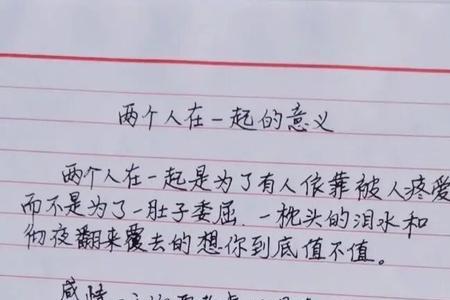 两个人在一起的意义
两个人在一起是为了有人依靠被人疼爱
而不是为了一肚子委屈、一枕头的泪水和
彻夜翻来覆去的想你到底值不值。
感情